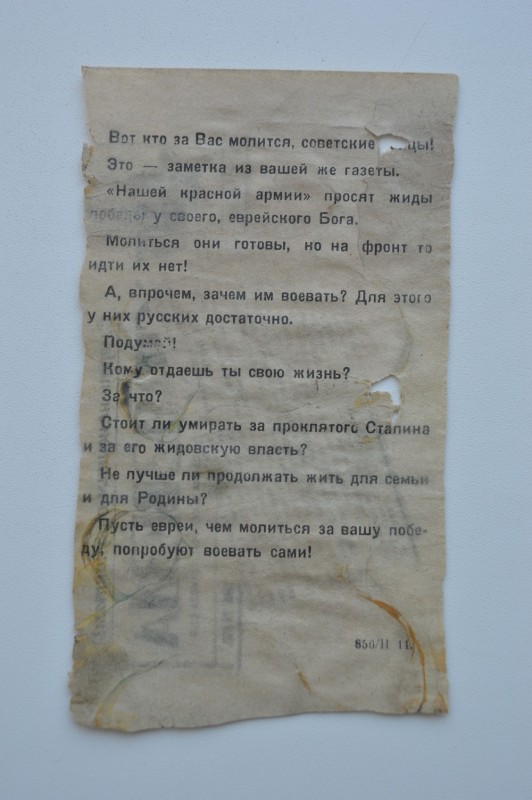 Вот кто за Вас молится, советские
Это — заметка из вашей же газеты.
«Нашей красной армии» просят жиды
победы у своего, еврейского Бога.
Молиться они готовы, но на фронт то
идти их нет!
А, впрочем, зачем им воевать? Для этого
у них русских достаточно.
Подумай!
Кому отдаешь ты свою жизнь?
За что?
Стоит ли умирать за проклятого Сталина
и за его жидовскую власть?
Не лучше ли продолжать жить для семьи
и для Родины?
Пусть евреи, чем молиться за вашу побе-
ду, попробуют воевать сами!